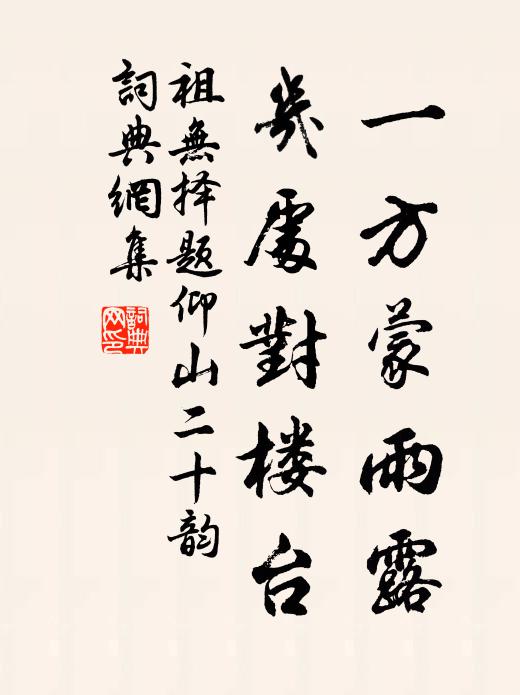 一方蒙雨露
幾處對楼台
祖無择题仰山二十韵
詞典網集
詞典網印